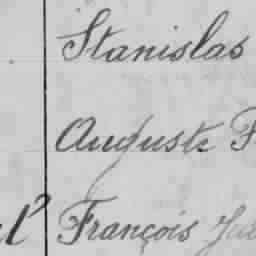 Stanislas
Auguste F
François